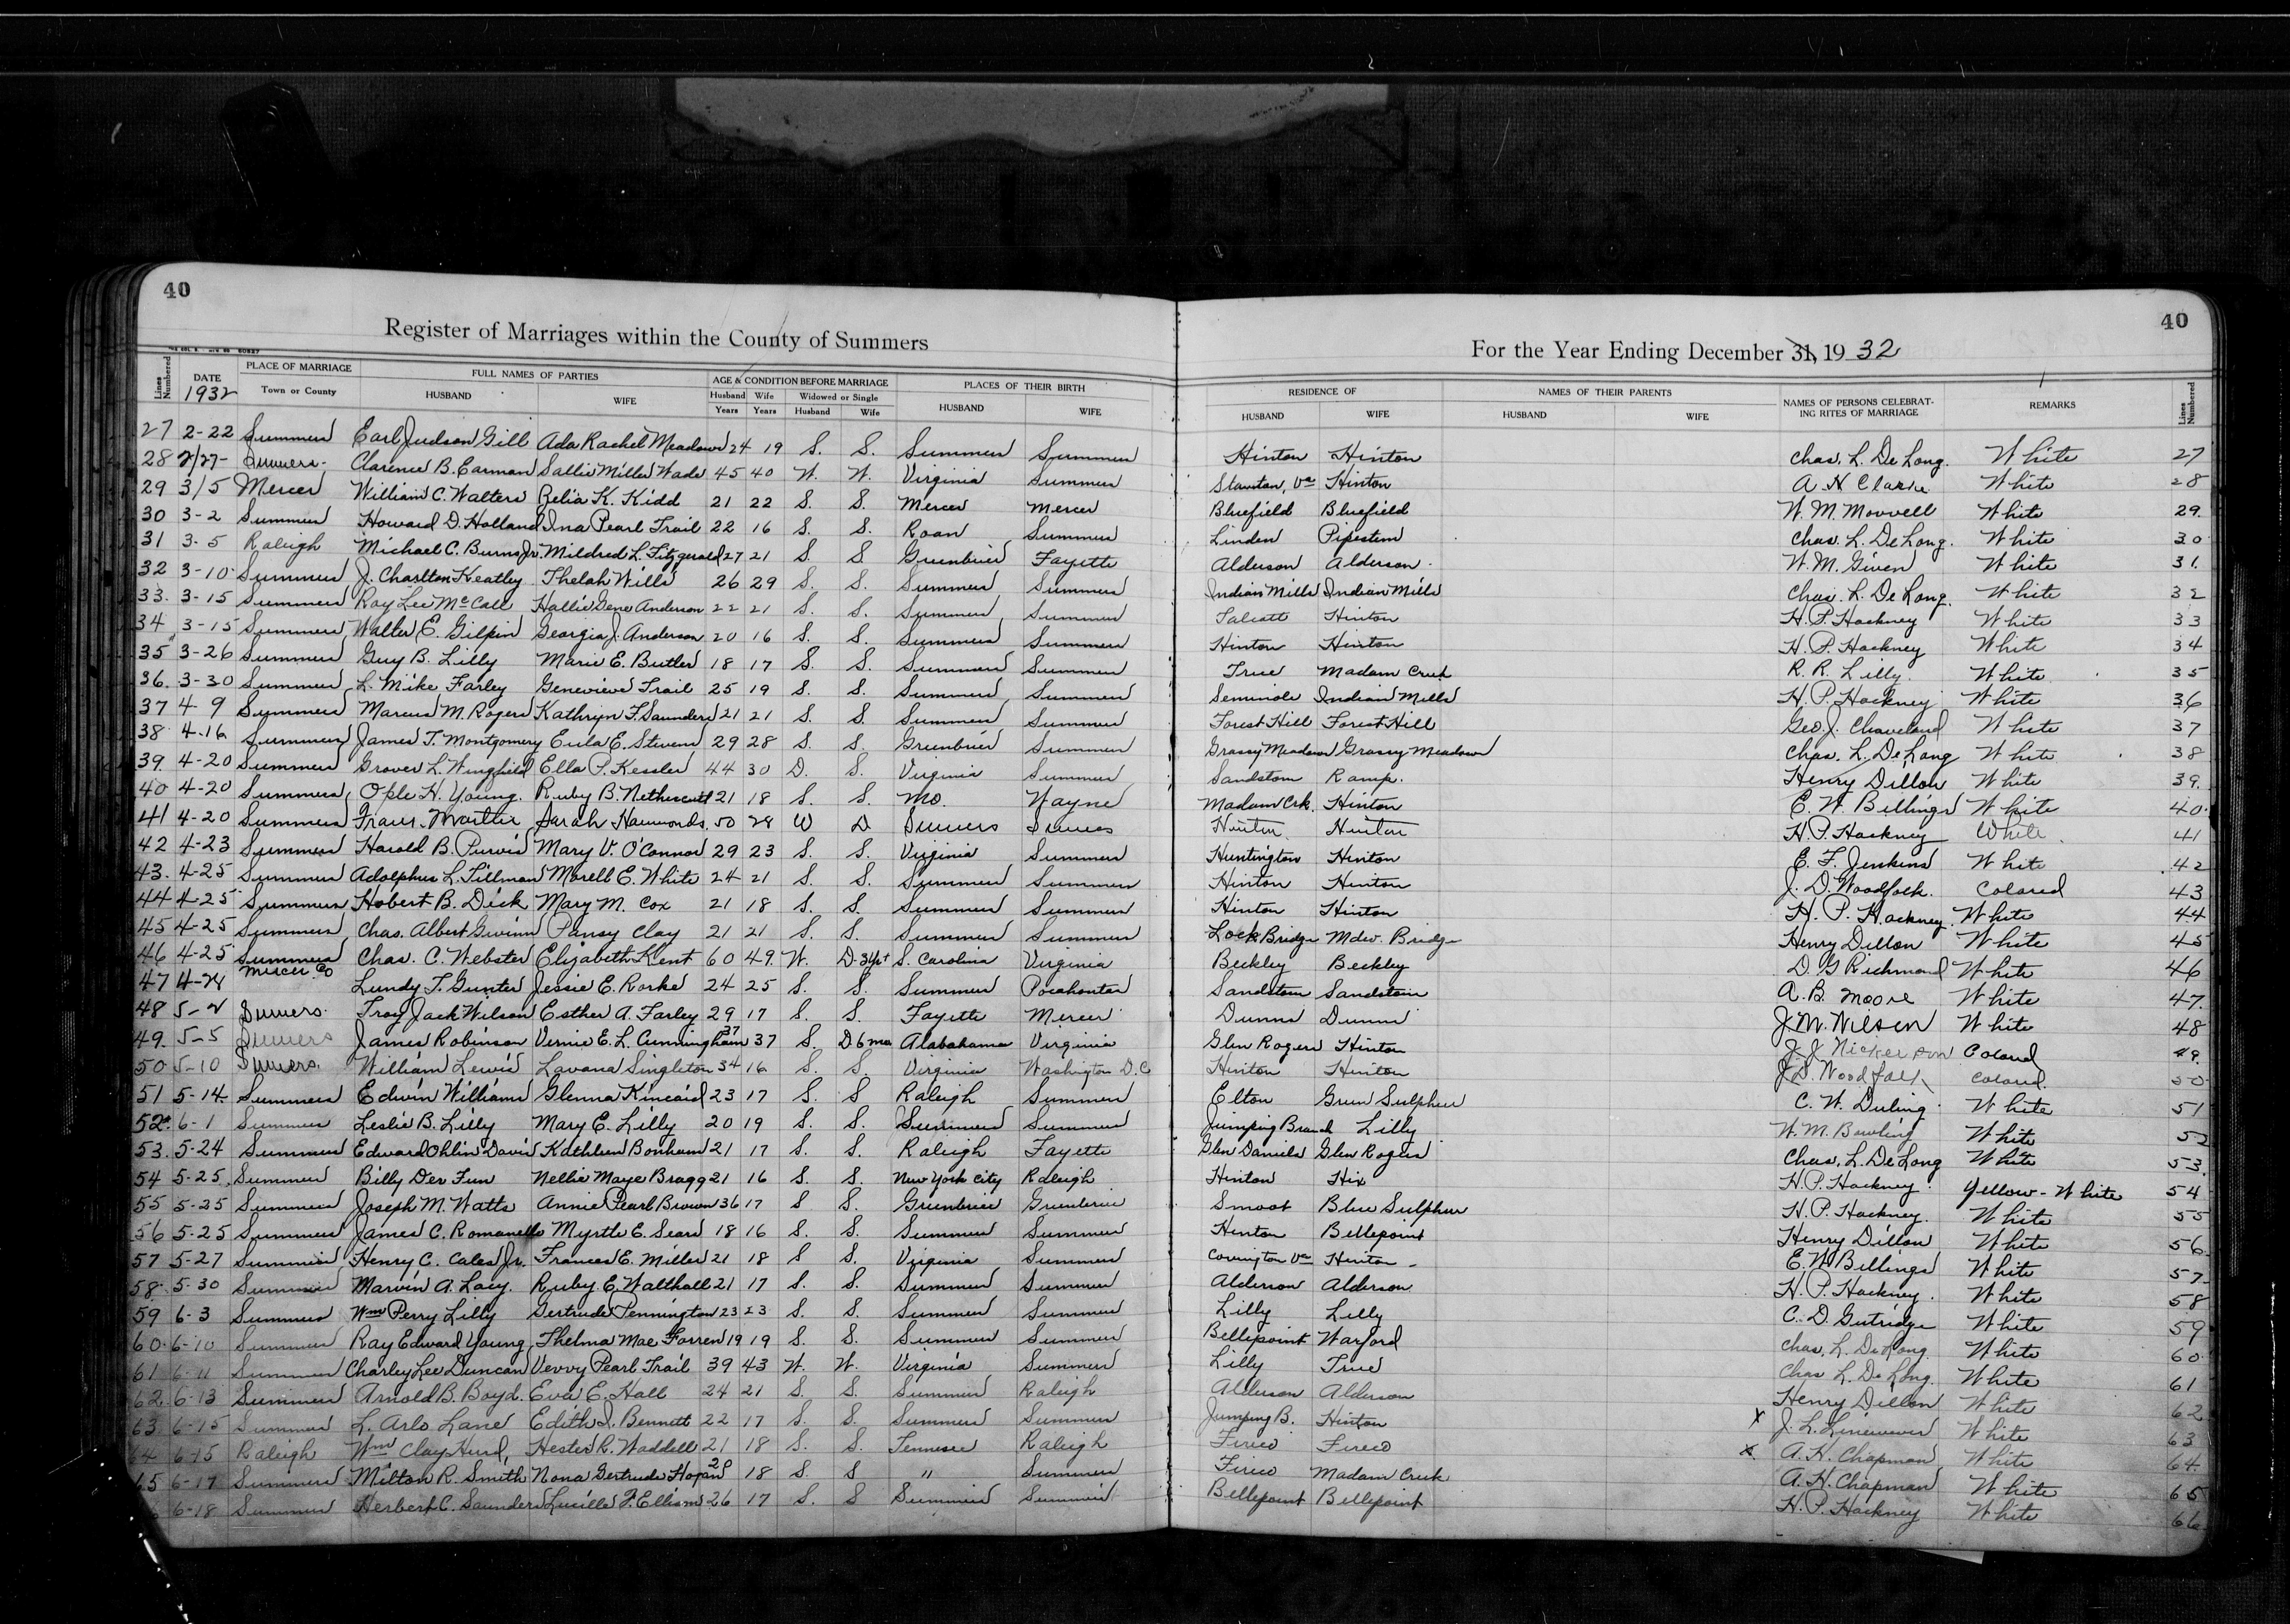 40
40
Register of Marriages within the County of Summers
For the Year Ending December 31, 19 32
Lines Numbered
DATE 1932
PLACE OF MARRIAGE
Town or County
FULL NAMES OF PARTIES
HUSBAND WIFE
AGE & CONDITION BEFORE MARRIAGE
Husband Years Wife Years Widowed or Single Husband Wife
PLACES OF THEIR BIRTH
HUSBAND WIFE
RESIDENCE OF
HUSBAND WIFE
NAMES OF THEIR PARENTS
HUSBAND WIFE
NAMES OF PERSONS CELEBRATING RITES OF MARRIAGE
REMARKS
Lines Numbered
27 2-22 Summers Earl Judson Gill Ada Rachel Meadows 24 19 S. S. Summers Summers Hinton Hinton Chas. L. De Long. White 27
28 2/27- Summers. Clarence B. Earman Sallie Miller Wade 45 40 W. W. Virginia Summers Staunton, Va Hinton A N Clarke White 28
29 3/5 Mercer William C. Walters Zelia K. Kidd 21 22 S. S. Mercer Mercer Bluefield Bluefield W. M. White 29.
30 3-2 Summers Howard D. Holland Ina Pearl Trail 22 16 S. S. Roan Summers Linden Pipestem Chas. L. De Long. White 30
31 3-5 Raleigh Michael C. Burns Jr. Mildred L. Fitzgerald 27 21 S. S Greenbrier Fayette Alderson Alderson. W. M. Given White 31.
32 3-10 Summers J. Charlton Keatley Thelah Wills 26 29 S. S. Summers Summers Indian Mills Indian Mills Chas. L. De Long. White 32
33. 3-15 Summers Roy Lee McCall Hallie Gene Anderson 22 21 S. S. Summers Summers Talcott Hinton H. P. Hackney White 33
34 3-15 Summers Walter E. Gilpin Georgia J. Anderson 20 16 S. S. Summers Summers Hinton Hinton H. P. Hackney White 34
35 3-26 Summers Guy B. Lilly Marie E. Butler 18 17 S. S. Summers Summers True Madam Creek R. R. Lilly. White 35
36. 3-30 Summers L. Mike Farley Genevieve Trail 25 19 S. S. Summers Summers Seminole Indian Mills H. P. Hackney White 36
37 4-9 Summers Marcus M. Rogers Kathryn F. Saunders 21 21 S. S. Summers Summers Forest Hill Forest Hill Geo. J. White 37
38 4-16 Summers James T. Montgomery Eula E. Stevens 29 28 S. S. Greenbrier Summers Grassy Meadows Grassy Meadows Chas. L. De Long White 38
39 4-20 Summers Grover L. Wingfield Ella P. Kessler 44 30 D. S. Virginia Summers Sandstone Ramp. Henry Dillon White 39.
40 4-20 Summers Ople H. Young. Ruby B. Nethercutt 21 18 S. S. Mo. Wayne Madam Crk. Hinton E. W. Billings White 40.
41 4-20 Summers Sarah Hammonds. 50 28 W D Summers Summers Hinton Hinton H. P. Hackney White 41
42 4-23 Summers Harold B. Purvis Mary V. O'Connor 29 23 S. S. Virginia Summers Huntington Hinton E. F. Jenkins White 42
43. 4-25 Summers Adolphus L. Tillman Morell E. White 24 21 S. S. Summers Summers Hinton Hinton J. D. Woodfolk. Colored 43
44 4-25 Summers Hobert B. Dick Mary M. Cox 21 18 S. S. Summers Summers Hinton Hinton H. P. Hackney. White 44
45 4-25 Summers Chas. Albert Gwinn Pansy Clay 21 21 S. S. Summers Summers Lock Bridge Mdw. Bridge Henry Dillon White 45
46 4-25 Summers Chas. C. Webster Elizabeth Kent 60 49. W. D. S. Carolina Virginia Beckley Beckley D. G Richmond White 46
47 4-28 Mercer Co Lundy T. Gunter Jessie E. Rorke 24 25 S. S. Summers Pocahontas Sandstone Sandstone A. B. Moore White 47.
48 5-2 Summers. Troy Jack Wilson Esther A. Farley 29 17 S. S. Fayette Mercer Dunns Dunns J M. Wilson White 48
49. 5-5 Summers James Robinson Vernie E. L. Cunningham 37 37 S. D 6 mos Alabahama Virginia Glen Rogers Hinton J. J. Nickerson Colored 49.
50 5-10 Summers. William Lewis Lavana Singleton 34 16 S. S. Virginia Washington D.C Hinton Hinton J D. Woodfalk Colored. 50
51 5-14 Summers Edwin Williams Glenna Kincaid 23 17 S. S Raleigh Summers Elton Green Sulphur C. W. Duling White 51
52 6-1 Summers Leslie B. Lilly Mary E. Lilly 20 19 S. S. Summers Summers Jumping Branch Lilly W. M. Bowling White 52
53. 5-24 Summers Edward Ohlin Davis Kathleen Bonham 21 17 S. S. Raleigh Fayette Glen Daniels Glen Rogers Chas. L. De Long White 53.
54 5-25. Summers Billy Der Fun Nellie Maye Bragg 21 16 S. S. New York City Raleigh Hinton Hix H. P. Hackney. Yellow-White 54
55 5-25 Summers Joseph M. Watts Annie Pearl Brown 36 17 S S. Greenbrier Greenbrier Smoot Blue Sulphur H. P. Hackney. White 55
56 5-25 Summers James C. Romanello Myrtle E. Sears 18 16 S. S. Summers Summers Hinton Bellepoint Henry Dillon White 56
57 5-27 Summers Henry C. Cales Jr. Frances E. Miller 21 18 S S. Virginia Summers Covington Va Hinton - E. W Billings White 57
58. 5-30 Summers Marvin A. Lacy. Ruby E. Walthall 21 17 S. S. Summers Summers Alderson Alderson H. P. Hackney. White 58
59 6-3 Summers Wm Perry Lilly Gertrude Pennington 23 23 S. S. Summers Summers Lilly Lilly C. D. Gutridge White 59
60. 6-10 Summers Ray Edward Young Thelma Mae Farren 19 19 S. S. Summers Summers Bellepoint Warford Chas. L. De Long. White 60
61 6-11 Summers Charley Lee Duncan Vevvy Pearl Trail 39 43 W. W. Virginia Summers Lilly True Chas L. De Long. White 61
62 6-13 Summers Arnold B. Boyd. Eva E. Hall 24 21 S. S. Summers Raleigh Alderson Alderson Henry Dillon White 62
63. 6-15 Summers L. Arlo Lane Edith I. Bennett 22 17 S. S. Summers Summers Jumping B. Hinton X J. L. White 63
64 6-15 Raleigh Wm Clay Hurd, Hester R. Waddell 21 18 S. S. Tennesee Raleigh Fireco Fireco X A. H. Chapman White 64.
65 6-17 Summers Milton R. Smith Nona Gertrude Hogan 20 18 S. S " Summers Fireco Madam Creek A. H. Chapman White 65
6-18 Summers Herbert C. Saunders Lucille F. Ellison 26 17 S. S Summers Summers Bellepoint Bellepoint H. P. Hackney White 66